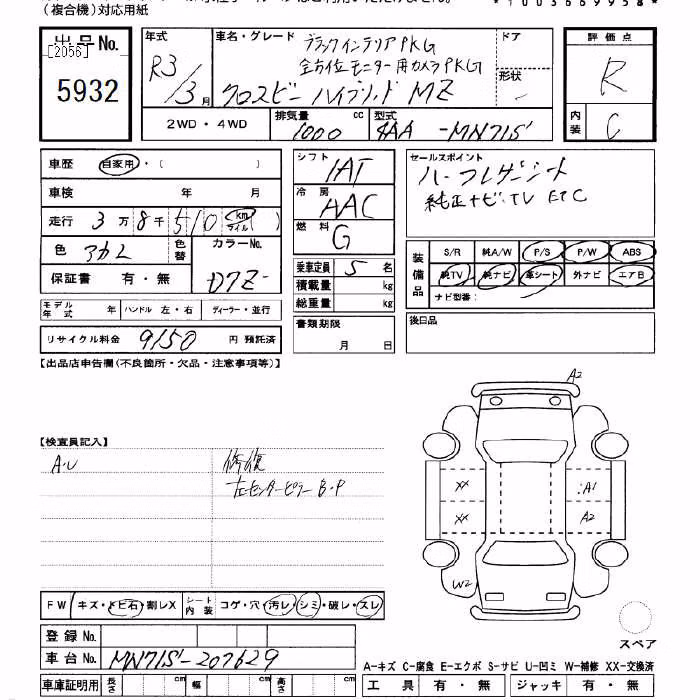 (複合機)対応用紙
*1003669958*
出品No.
[2056]
5932
年式
R3/3月
車名・グレード
ブラックインテリアPKG
全方位モニター用カメラPKG
クロスビー ハイブリッド MZ
ドア
形状
評価点
R
内装
C
2WD・4WD
排気量 1000 cc
型式 4AA-MN71S
車歴 自家用・( )
車検 年 月
走行 3万8千510 km マイル ( )
色 アカL 色替 カラーNo.
D7Z-
保証書 有・無
モデル年式 年 ハンドル 左・右 ディーラー・並行
リサイクル料金 9150 円 預託済
シフト IAT
冷房 AAC
燃料 G
乗車定員 5 名
積載量 kg
総重量 kg
書類期限
月 日
セールスポイント
ハーフレザーシート
純正ナビ・TV ETC
装備品
S/R 純A/W P/S P/W ABS
純TV 純ナビ 革シート 外ナビ エアB
ナビ型番:
後日品
【出品店申告欄(不良箇所・欠品・注意事項等)】
【検査員記入】
A・U
修復
左センターピラーB・P
A2
XX A1
XX A2
W2
スペア
FW キズ・トビ石・割レX シート内装 コゲ・穴・汚レ・シミ・破レ・スレ
登録No.
車台No. MN71S-207629
車庫証明用 長さ cm 幅 cm 高さ cm
A-キズ C-腐食 E-エクボ S-サビ U-凹ミ W-補修 XX-交換済
工具 有・無 ジャッキ 有・無